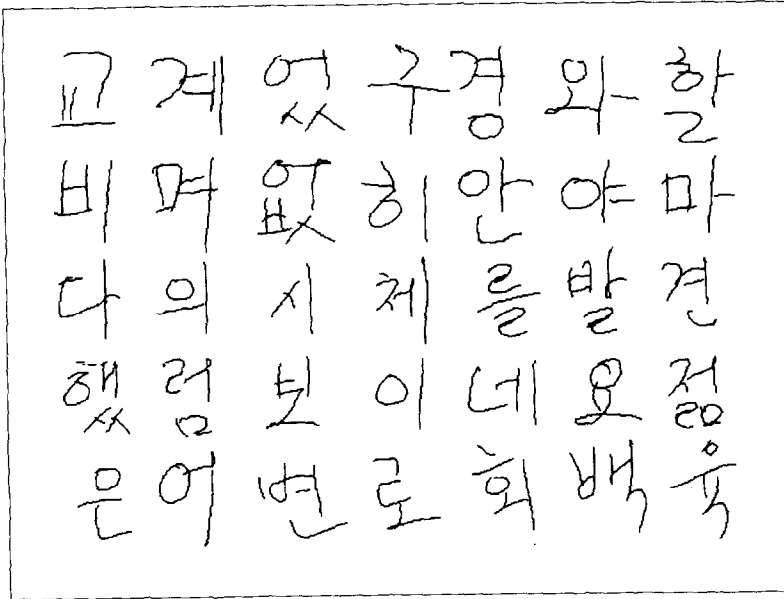 교계었구경와할
비며없히안야마
다의시체를발견
했럼보이네요젊
은어변로회백육